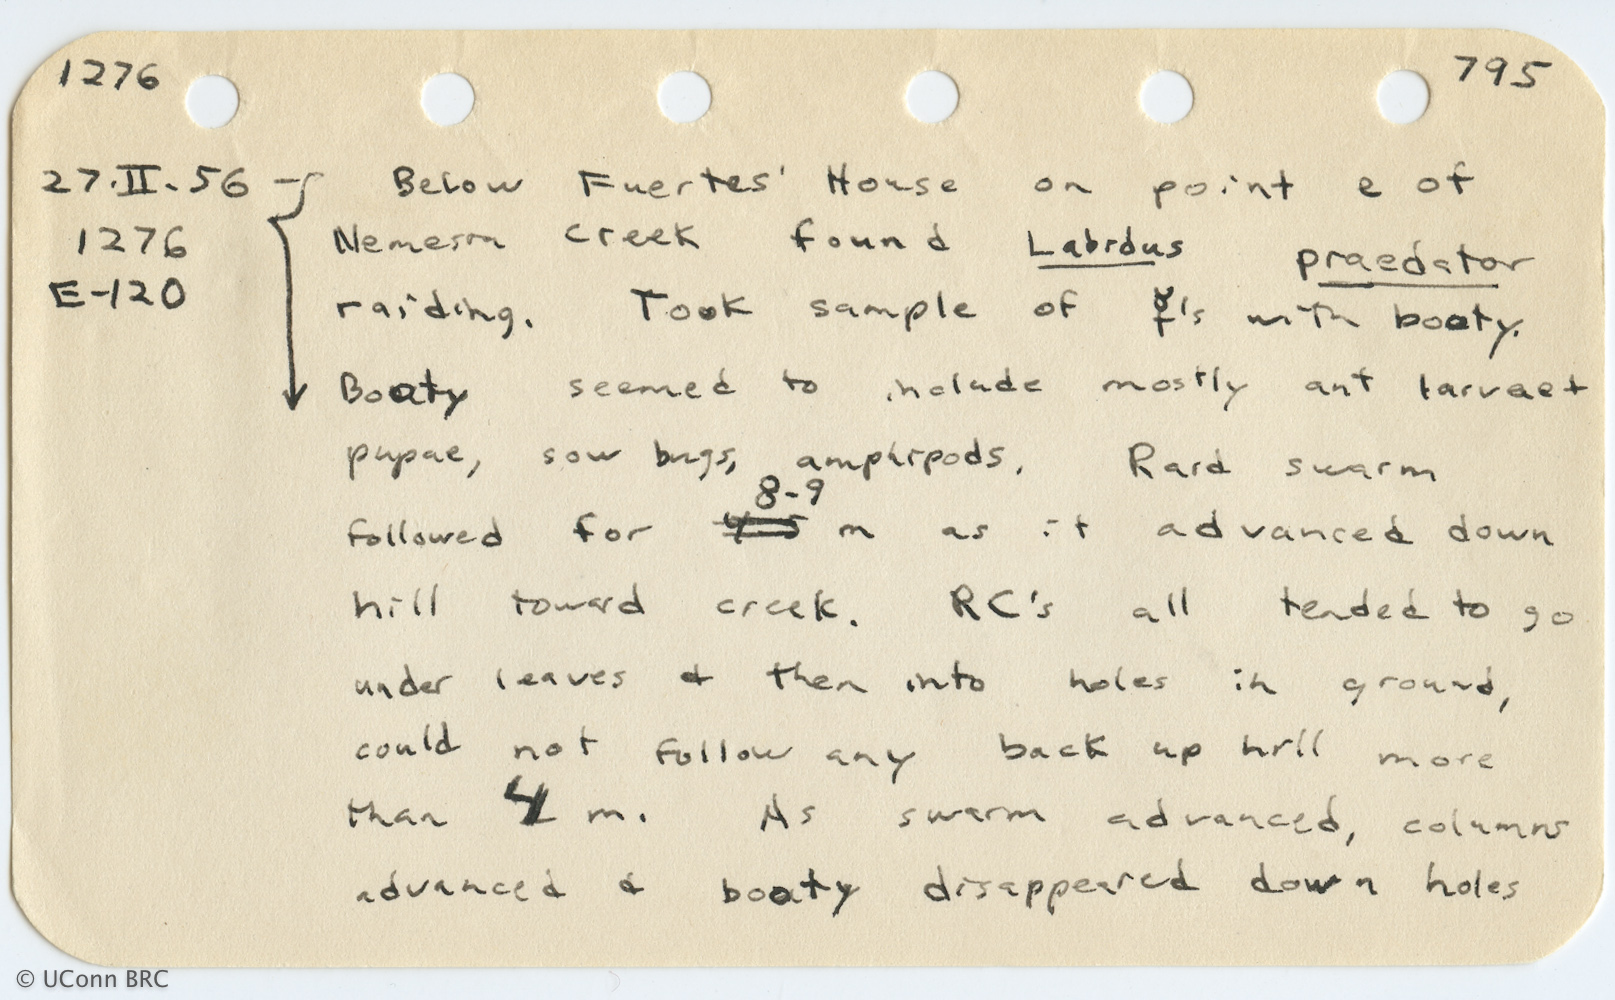 1276 795
27·II·56 Below Fuertes' House on point e of
1276 Nemesia Creek found Labidus praedator
E-120 raiding. Took sample of ☿'s with booty.
Booty seemed to include mostly ant larvae +
pupae, sow bugs, amphipods. Raid swarm
8-9
followed for 4-5 m as it advanced down
hill toward creek. RC's all tended to go
under leaves & then into holes in ground,
could not follow any back up hill more
than 4 m. As swarm advanced, columns
advanced & booty disappeared down holes
© UConn BRC